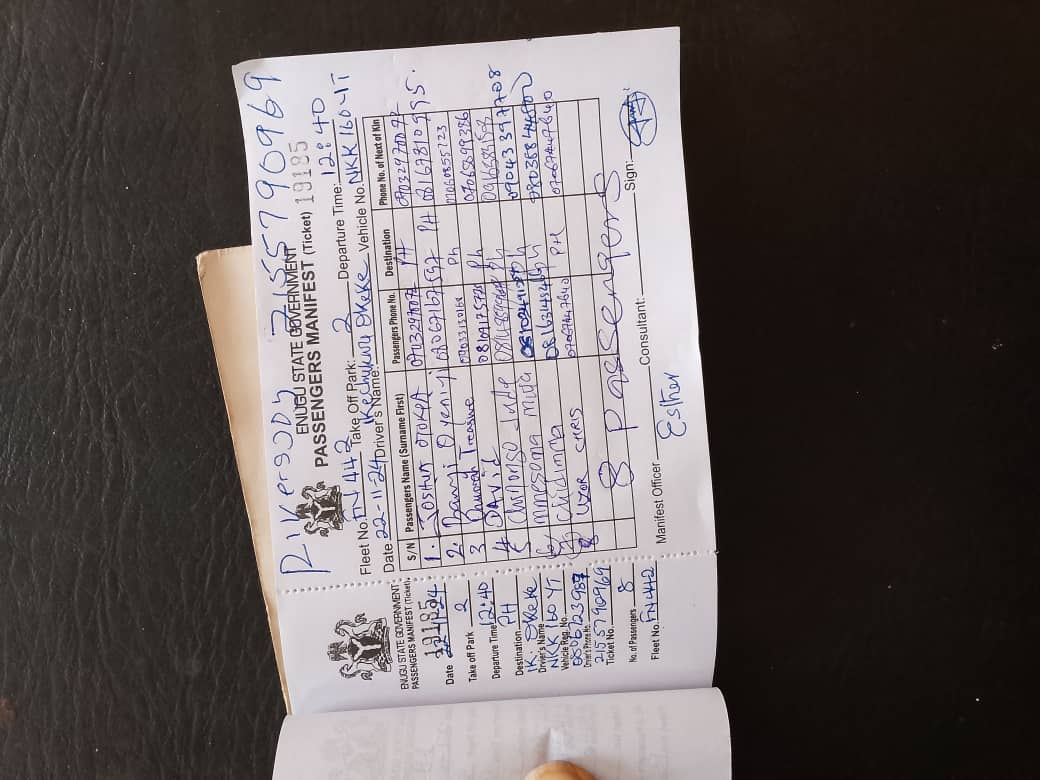 RIVERS JOY 2155790969
ENUGU STATE GOVERNMENT
PASSENGERS MANIFEST (Ticket) 19185
Fleet No. FN442 Take Off Park: 2 Departure Time: 12:40
Date 22-11-24 Driver's Name: Ikechukwu Okeke Vehicle No. NKK 160 YT
S/N Passengers Name (Surname First) Passengers Phone No. Destination Phone No. of Next of Kin
1. Joshua PH
2. Banji Oyeniyi 08067167597 PH 08167810995.
3 Treasure Ph 07068699386
4 David 08109175720 Ph
5 Chinonso Jude Ph 09043397708
6 Mmesoma Ph
7 Chidimma Ph
8 UZOR CHRIS 07067447640 PH 07067447640
8 Passengers
Manifest Officer Esther Consultant: Sign:
ENUGU STATE GOVERNMENT
PASSENGERS MANIFEST (Ticket)
19185
Date 22-11-24
Take off Park 2
Departure Time 12:40
Destination PH
Driver's Name IK. Okeke
Vehicle Reg. No. NKK 160 YT
Driver's Phone No.
Ticket No. 2155790969
No. of Passengers 8
Fleet No. FN442